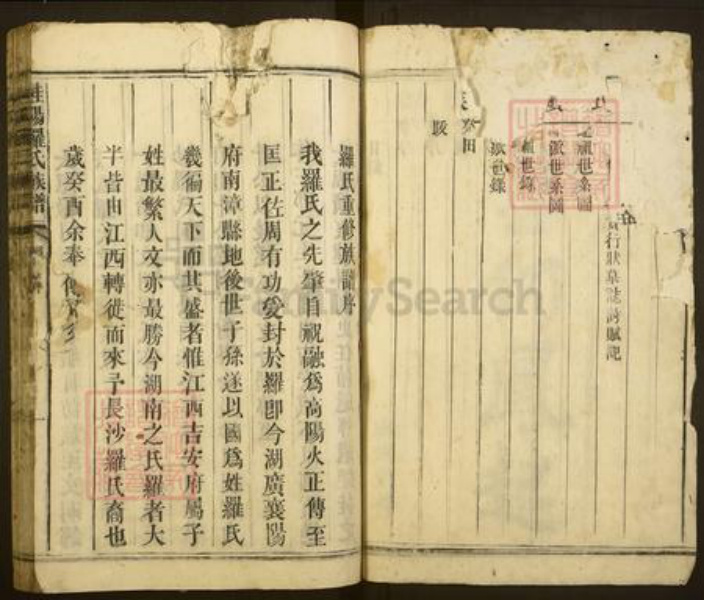 行狀墓誌詩賦記
派世系圖
世錄
派世錄
祭田
跋
羅氏重修族譜序
我羅氏之先肇自祝融為高陽火正傳至
匡正佐周有功爰封於羅卽今湖廣襄陽
府南漳縣地後世子孫遂以國為姓羅氏
幾徧天下而其盛者惟江西吉安府屬子
姓最繁人文亦最勝今湖南之氏羅者大
半皆由江西轉徙而來予長沙羅氏裔也
歲癸酉余奉
陽羅氏族譜
FamilySearch